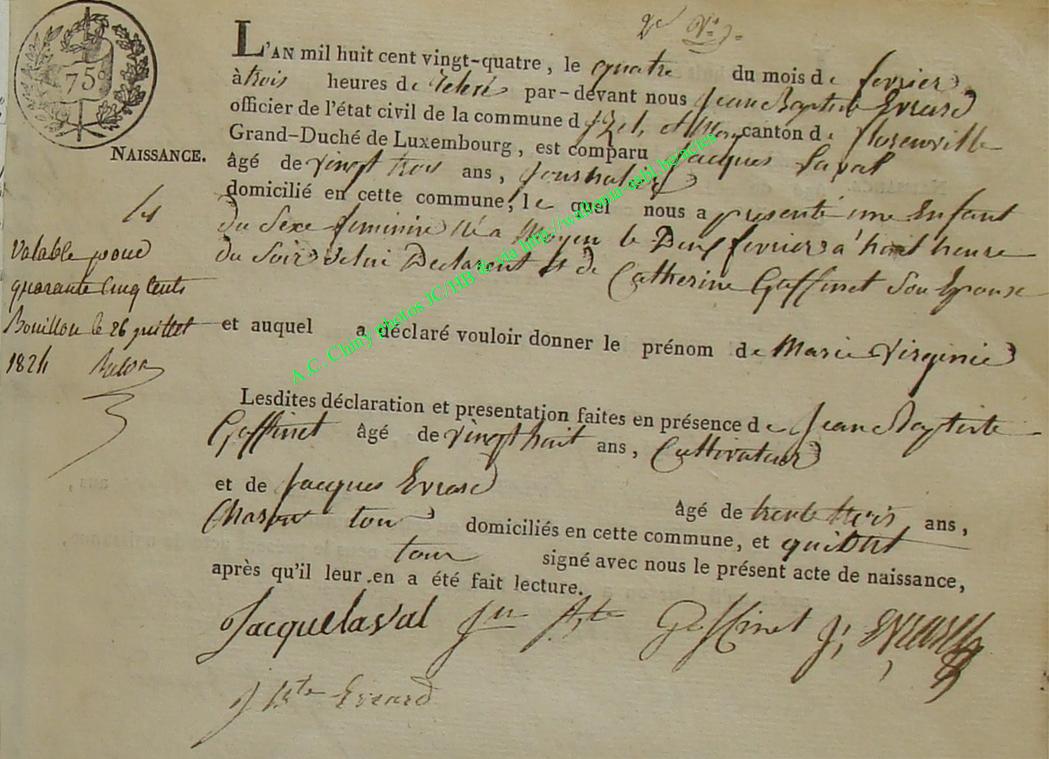 75c
2e Vn
L'AN mil huit cent vingt-quatre, le quatre du mois de fevrier,
à trois heures de relevé par-devant nous Jean Baptiste Evrard
officier de l'état civil de la commune d'Izel, canton de florenville
Grand-Duché de Luxembourg, est comparu Jacques Laval
NAISSANCE.
âgé de vingt trois ans, Journalier
domicilié en cette commune, le quel nous a presenté une Enfant
du Sexe feminine Né a Moyen le Deux fevrier à huit heure
du Soir de lui Declarent et de Catherine Goffinet Son Epouse
et auquel a déclaré vouloir donner le prénom de Marie Virginie
Valable pour
quarante Cinq Cents
Bouillon le 26 juillet
1824
Lesdites déclaration et presentation faites en présence de Jean Baptiste
Goffinet âgé de vingt huit ans, Cultivateur
et de Jacques Evrard
âgé de trente trois ans,
domiciliés en cette commune, et
signé avec nous le présent acte de naissance,
après qu'il leur en a été fait lecture.
Jacque laval Jn Bte Goffinet J; Evrard
J Bte Evrard
A.C. Chiny photos JC/HB & via http://wallonia-asbl.be/actes